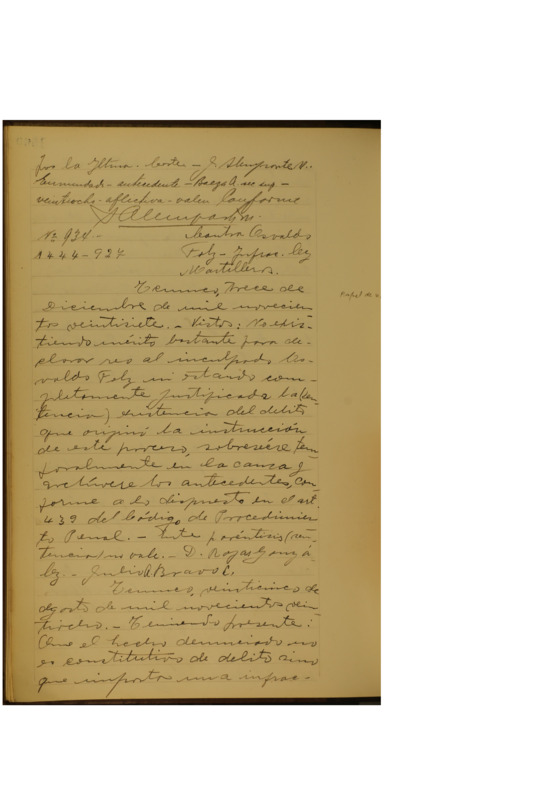 por la Iltma. Corte - J Alemparte V..
Enmendado - antecedente -
veintiocho - aflictiva - valen Conforme
J Alemparte V.
Nº 934 -
1444 - 927
Contra Osvaldo
Folz - Infrac. ley
Martilleros.
Temuco, trece de
Diciembre de mil novecien-
tos veintisiete. - Vistos: No exis-
tiendo mérito bastante para de-
clarar reo al inculpado Os-
valdo Folz ni estando com-
pletamente justificada la (sen-
tencia) existencia del delito
que originó la instrucción
de este proceso, sobreséese tem-
poralmente en la causa y
archívese los antecedentes, con
forme a lo dispuesto en el art.
439 del Código de Procedimien
to Penal. - Este paréntisis (sen-
tencia) no vale. - D. Rojas Gonzá
lez. - Julio A Bravo C.
Temuco, veinticinco de
Agosto de mil novecientos vein-
tiocho. - Teniendo presente:
Que el hecho denunciado no
es constitutivo de delito sino
que importa una infrac-